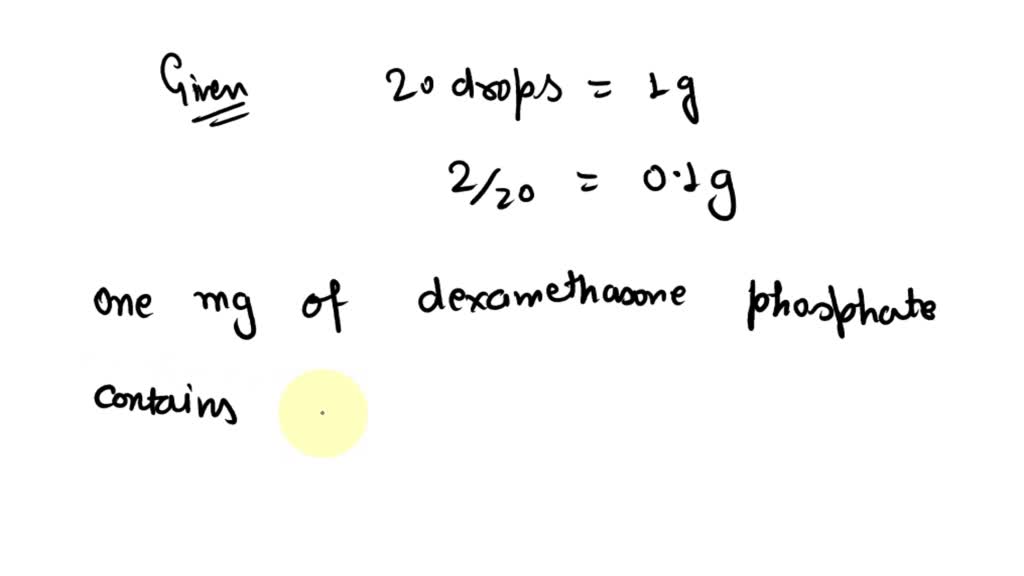 Given 20 drops = 1g
2/20 = 0.1g
one mg of dexamethasone phosphate
contains